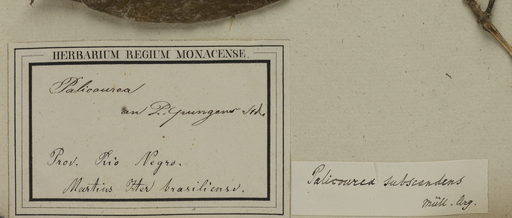 HERBARIUM REGIUM MONACENSE.
Palicourea
an P. pungens Std.
Prov. Rio Negro.
Martius Iter brasiliense.
Palicourea subscandens
Müll. Arg.